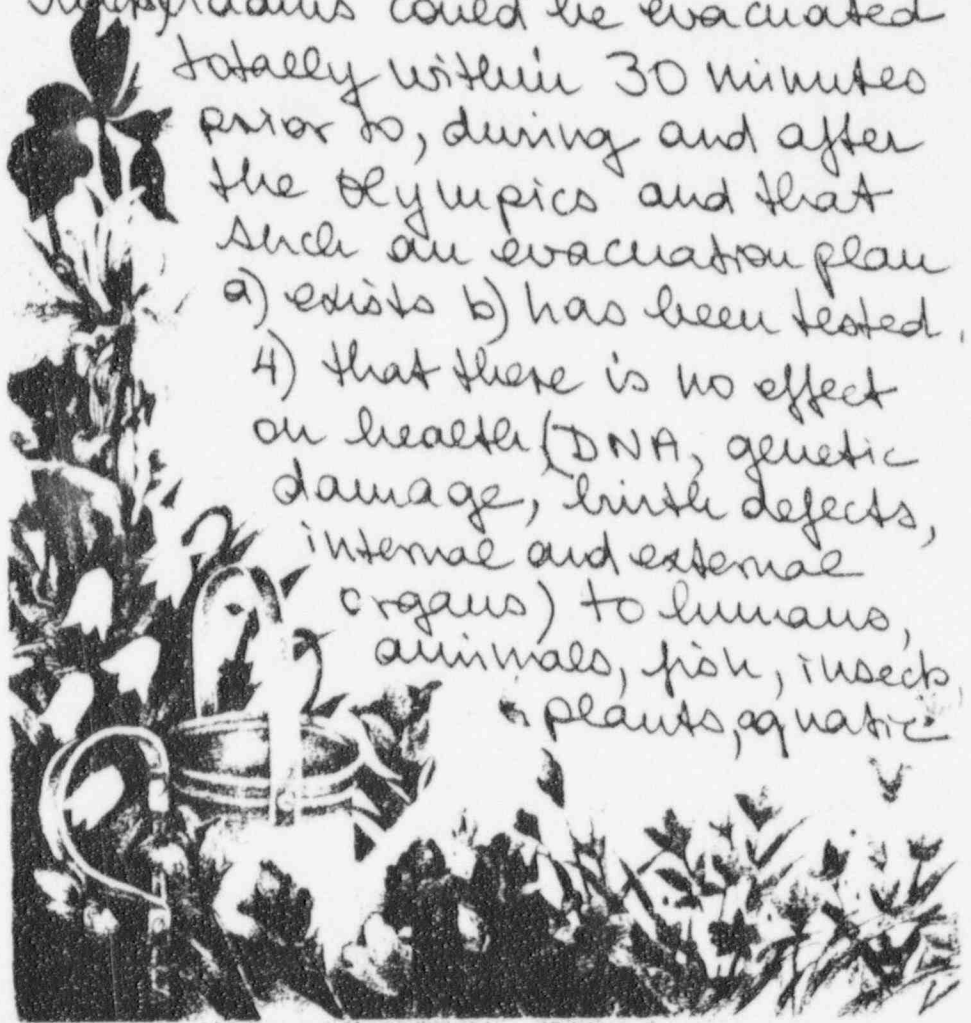 could be evacuated
totally within 30 minutes
prior to, during and after
the Olympics and that
such an evacuation plan
a) exists b) has been tested.
4) that there is no effect
on health (DNA, genetic
damage, birth defects,
internal and external
organs) to humans,
animals, fish, insects,
plants, aquatic